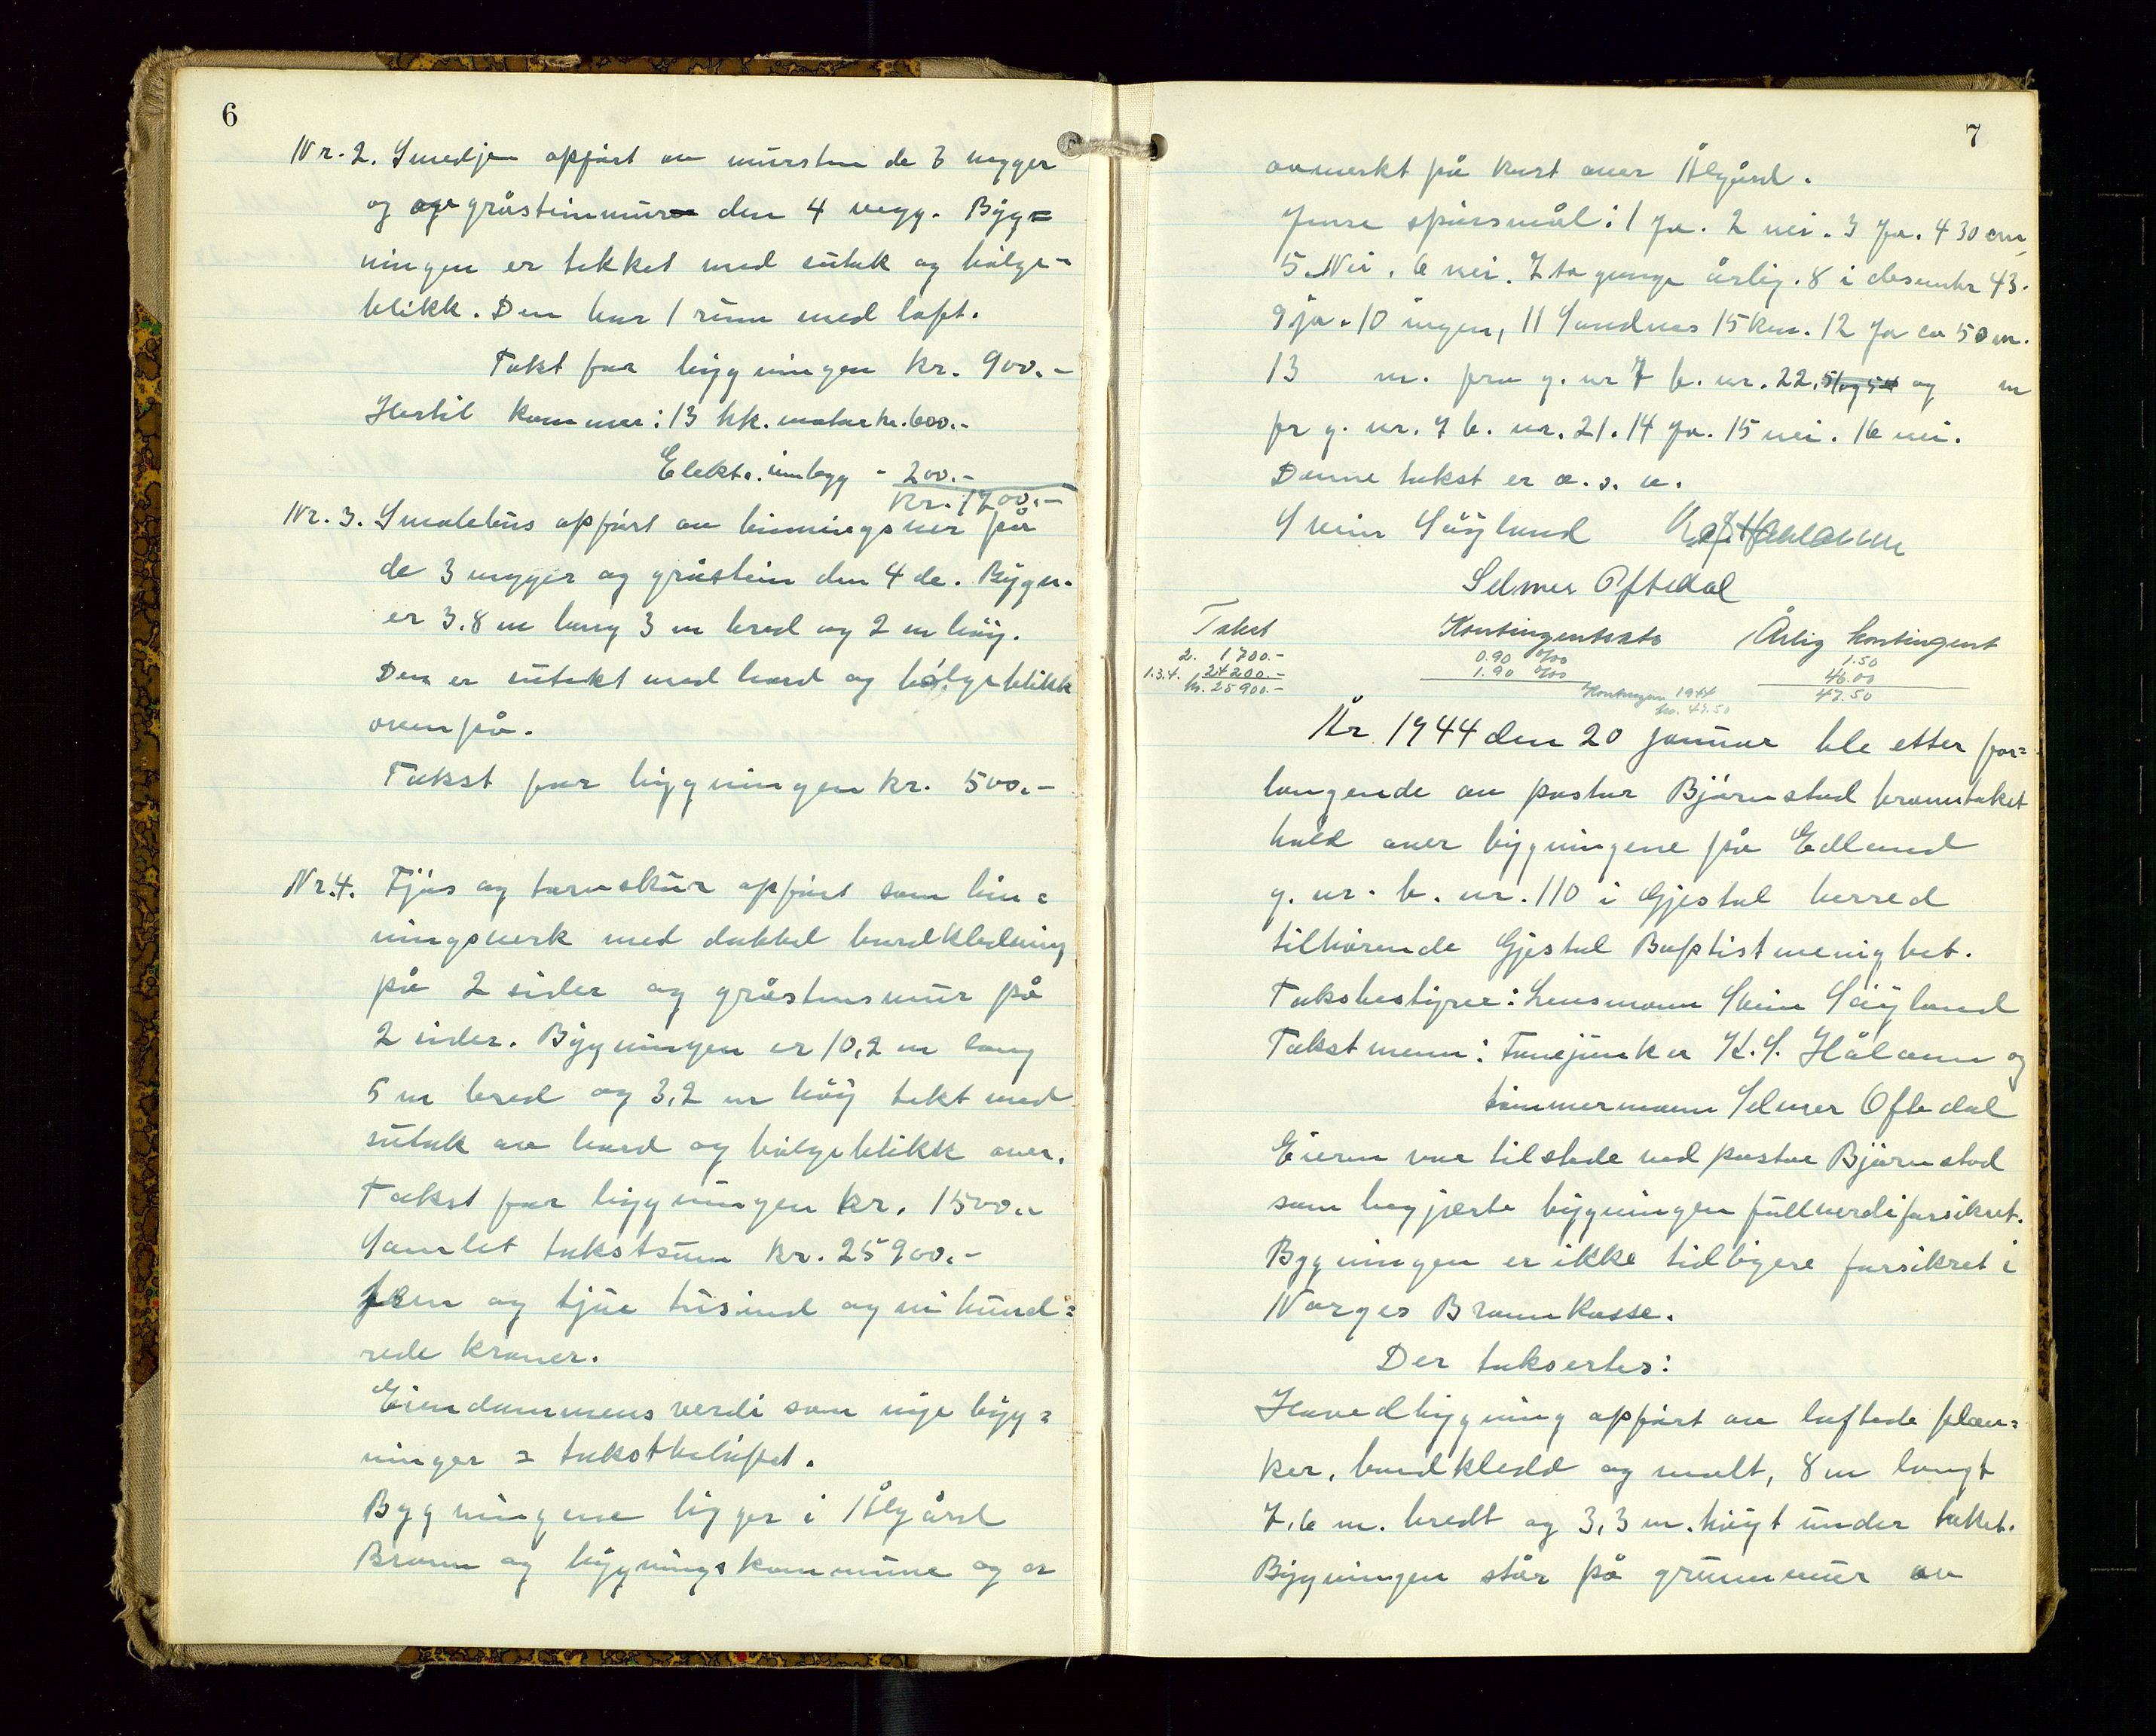 6
Nr. 2. Smedjen opført av mursten de 3 vegger
og gråsteinmur den 4 vegg. Byg=
ningen er tekket med sutak og bølge-
blikk. Den har 1 rum med loft.
Takst for bygningen kr. 900.-
Hertil kommer: 13 hk. motor kr. 600.-
Elekt. innlegg - 200.-
kr. 1700.-
Nr. 3. opført av binningsver på
de 3 vegger og gråstein den 4 de. Bygn.
er 3.8 m lang 3 m bred og 2 m høy.
Den er sutekt med bord og bølgeblikk
ovenpå.
Takst for bygningen kr. 500.-
Nr. 4. Fjøs og torvskur opført som bin=
ningsverk med dobbel bordkledning
på 2 sider og gråstensmur på
2 sider. Bygningen er 10,2 m lang
5 m bred og 3,2 m høy tekt med
sutak av bord og bølgeblikk over.
Takst for bygningen kr. 1500.-
Samlet takstsum kr. 25900.-
fem og tjue tusind og ni hund=
rede kroner.
Eiendommens verdi som nye byg=
ninger = takstbeløpet.
Bygningene ligger i Ålgård
Brann og bygningskommune og er
7
avmerkt på kart over Ålgård.
spørsmål: 1 Ja. 2 nei. 3 Ja. 4 30 cm
5. Nei. 6 nei. 7 to gange årlig. 8 i desember 43.
9 ja. 10 ingen, 11 Sandnes 15 km. 12 Ja ca 50 m.
13 m. fra g. nr 7 b. nr. 22, 51 og 54 og m
fr g. nr. 7 b. nr. 21. 14 Ja. 15 nei. 16 nei.
Denne takst er o. s. v.
Svein Søyland
Selmer Oftedal
Takst Kontingentsats Årlig kontingent
2. 1700.- 0.90 o/oo 1.50
1.3.4. 24200.- 1.90 o/oo 46.00
kr. 25900.- Kontingen 1944 47.50
kr. 47.50
År 1944 den 20 januar ble etter for=
langende av pastor Bjørnstad branntakst
hold over bygningene på Edland
g. nr. b. nr. 110 i Gjestal herred
tilhørende Gjestal Baptistmenighet.
Takstbestyrer: Lensmann Svein Søyland
Takstmenn: Fanejunker K. S. Håland og
tømmermann Selmer Oftedal
Eieren var tilstede ved pastor Bjørnstad
som begjærte bygningen fullverdiforsikret.
Bygningen er ikke tidligere forsikret i
Norges Brannkasse.
Der taksertes:
Hovedbygning opført av laftede plan=
ker, bordkledd og malt, 8 m langt
7,6 m. bredt og 3,3 m. høgt under taket.
Bygningen står på grunnmur av